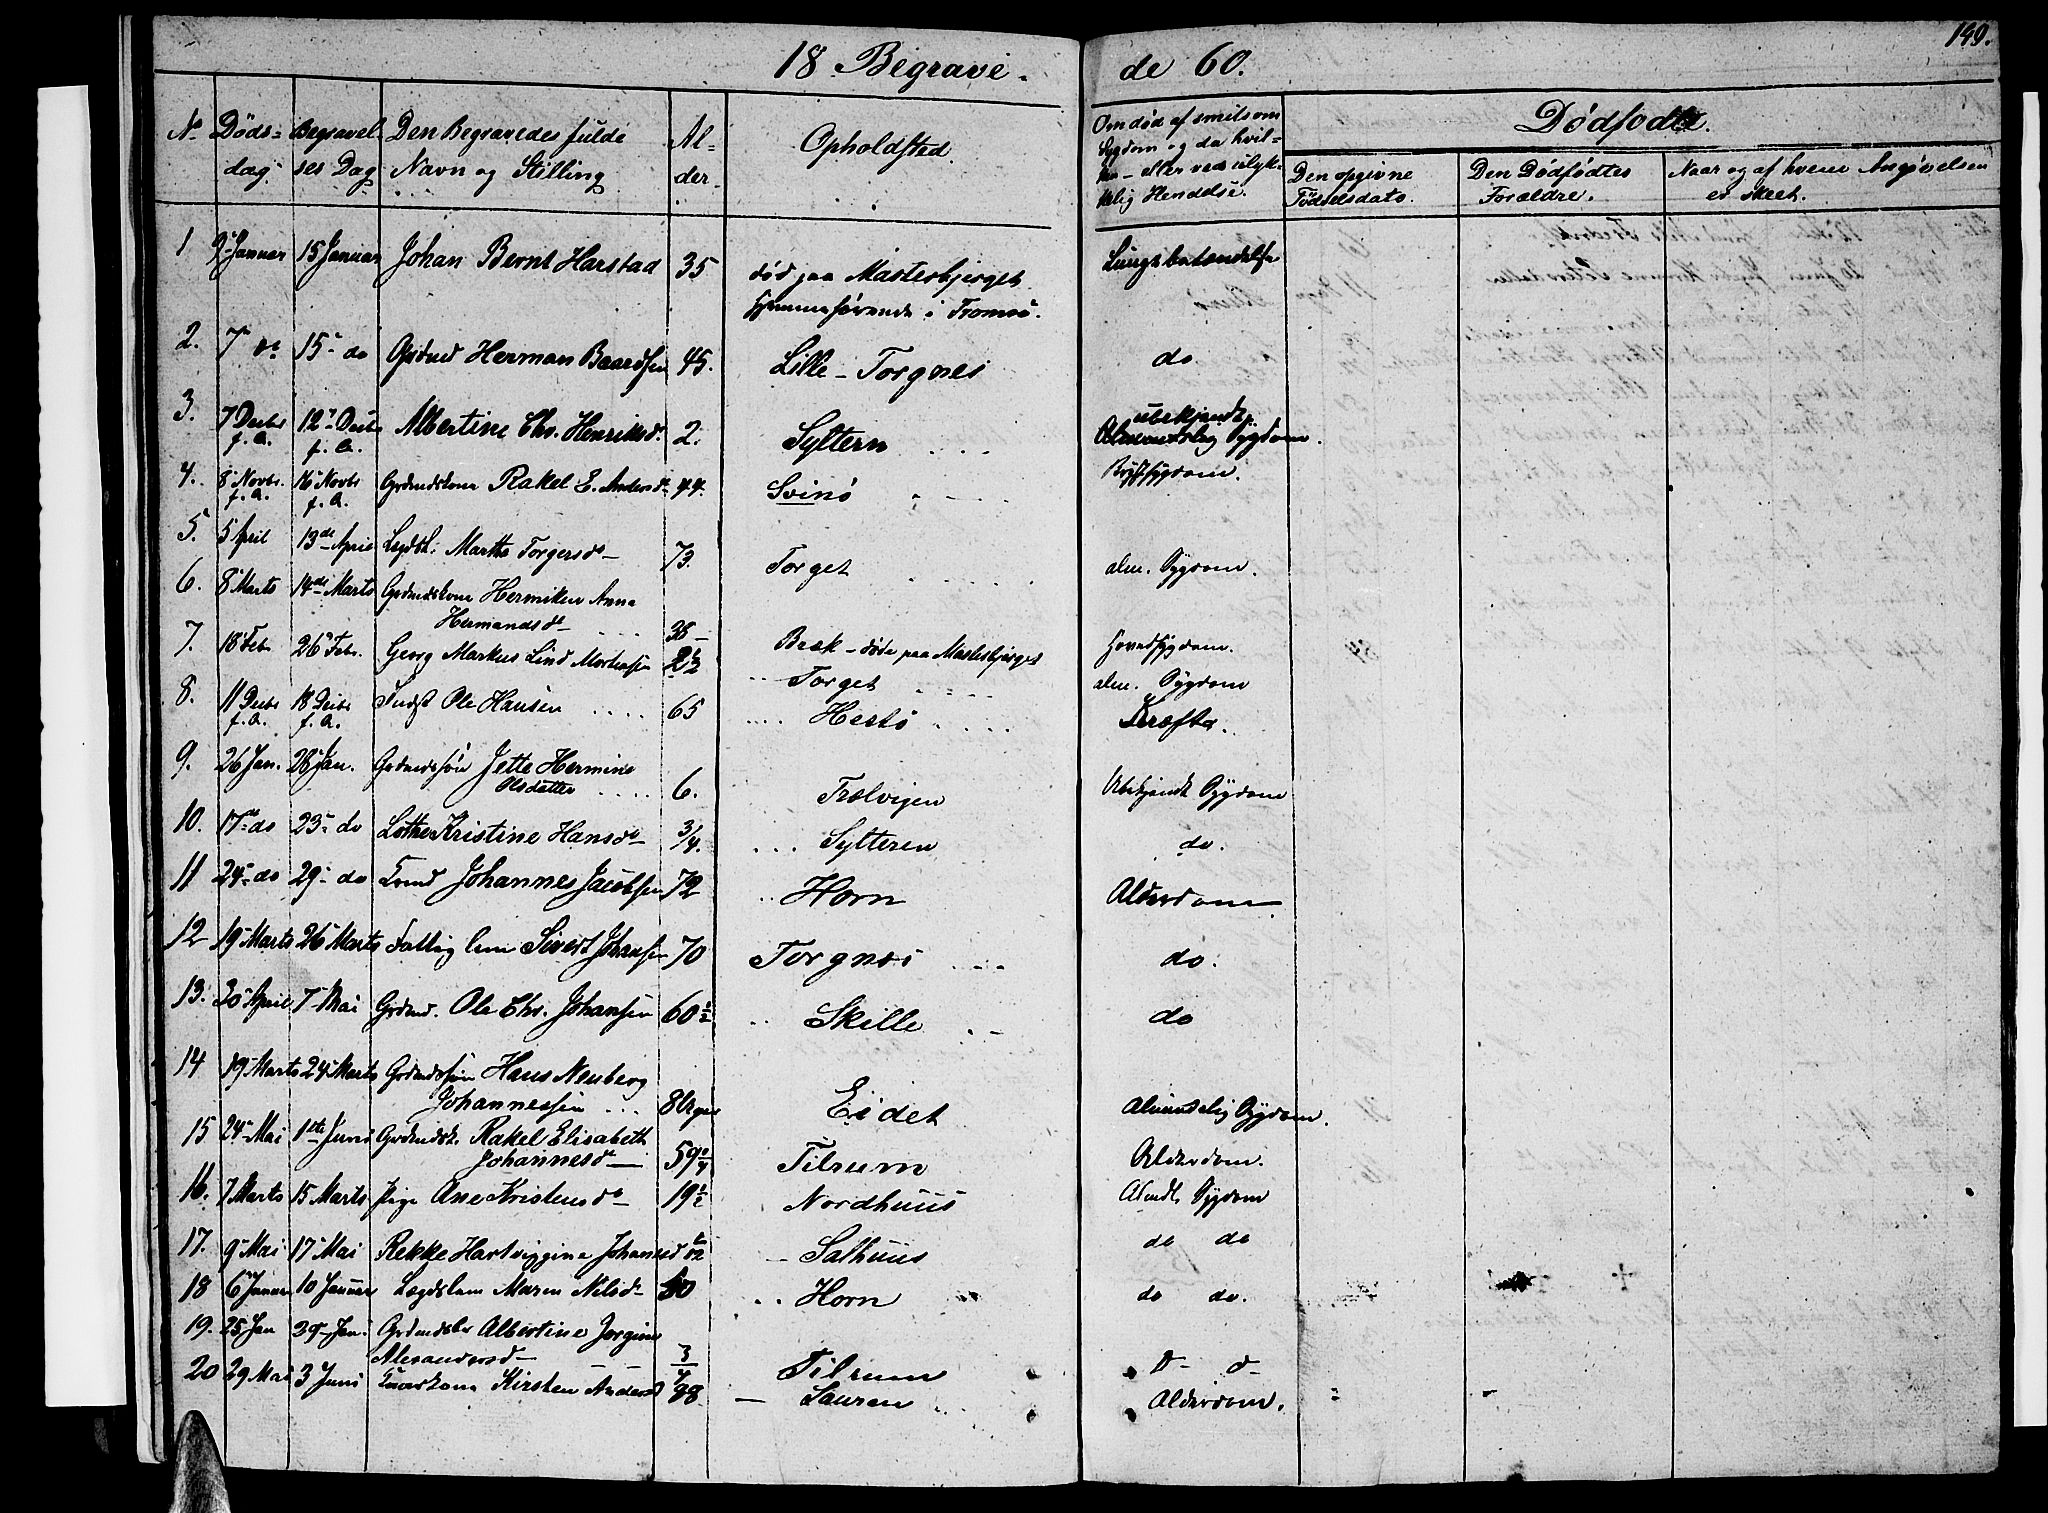 149.
18 Begrave-
de 60.
N. Døds- dag. Begravel- ses Dag Den Begravedes fulde Navn og Stilling Al- der. Opholdsted. Om død af smitsom Sygdom og da hvil- ken - eller ved ulyk- kelig Hendelse. Dødfødte.
Den opgivne Fødselsdato. Den Dødfødtes Forældre. Naar og af hvem Angivelsen er skeet.
1 9 Januar 15 Januar Johan Bernt Harstad 35 død paa Mastesbjerget Lungebetændelse
hjemmehørende i Tromsø.
2. 7 do 15 do Grdmd Herman Baardsen 45. Lille-Torgnes do
3. 7 Decbr f. A. 12 Decbr f. A. Albertine Chr. Henriksd. 2. Syltern ubekjendt Sygdom.
4. 8 Novbr. f. A. 16 Novbr f. A. Grdmdskone Rakel E. Andersd 44. Svinø Brystsygdom.
5. 5 April 13de April Lægdsl. Martha Torgersd 73. Torget alm. Sygdom.
6. 8 Marts 14de Marts Grdmdskone Hermiken Anna
Hermandsd 38 Bræk - døde paa Mastesbjerget Hovedsygdom.
7. 18 Feb 26 Febr. Georg Markus Lind Mortensen 2½ Torget alm. Sygdom
8. 11 Decbr f. A. 18 Decbr f. A. Indst Ole Hansen 65 Hestø Kræfta.
9. 26 Jan. 28 Jan. Grdmdssøn Jette Hermine
Olsdatter 6. Trælvigen Ubekjendt Sygdom
10. 17 do 23 do Lothe Kristine Hansd 3/4. Sylteren do.
11 24 do 29 do Johannes Jacobsen 72 Horn Alderdom
12 19 Marts 26 Marts Fattiglem Sivert Johansen 70 Torgnes do.
13. 30 April 7 Mai Grdmd. Ole Chr. Johansen 60½ Skille do
14 19 Marts 24 Marts Grdmdssøn Hans Neuberg
Johannessen 8 Uger Eidet Almindelig Sygdom.
15 24 Mai 1ste Juni Grdmdsk. Rakel Elisabeth
Johannesd 59 Tilrum Alderdom.
16. 7 Marts 15 Marts Pige Ane Kristensd 19½ Nordhuus Almdl. Sygdom
17. 9 Mai 17 Mai Rekke Hartviggine Johansd Salhuus do do
18 6 Januar 10 Januar Lægdslem Maren Nilsd Horn do do.
19. 25 Jan Jan. Albertine Jorgine
Alexandersd 3/4 Tilrum D- d-
20 29 Mai 3 Juni Kirsten Andersd 88 Sauren Alderdom.